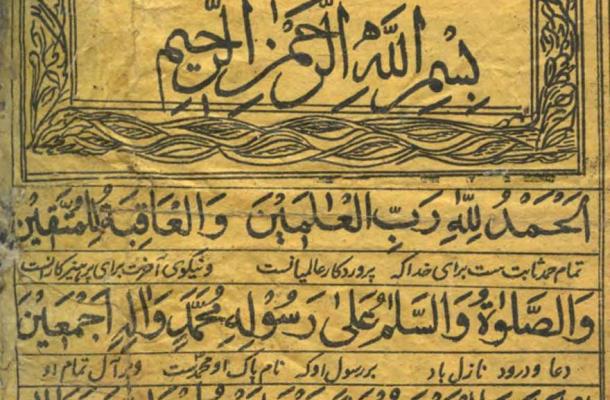 بِسْمِ اللّٰهِ الرَّحْمٰنِ الرَّحِيْمِ
اَلْحَمْدُ لِلّٰهِ رَبِّ الْعٰلَمِيْنَ وَالْعَاقِبَةُ لِلْمُتَّقِيْنَ
تمام حمد ثابت ست برای خدا که پروردگار عالمیانست ونیکوی آخرت برای پرهیزکارانست
وَالصَّلٰوةُ وَالسَّلَامُ عَلٰى رَسُوْلِهٖ مُحَمَّدٍ وَاٰلِهٖ اَجْمَعِيْنَ
دعا و درود نازل باد بر رسول او که نام پاک او محمدست و بر آل تمام او